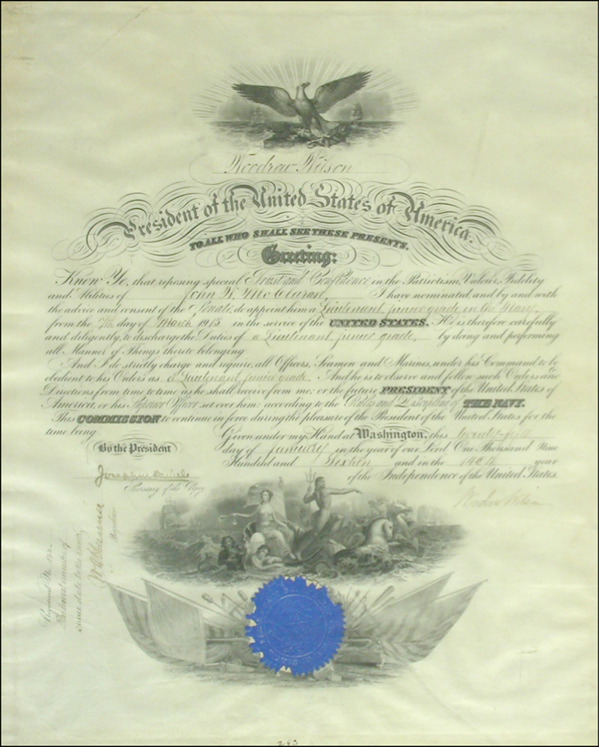 Woodrow Wilson
President of the United States of America.
TO ALL WHO SHALL SEE THESE PRESENTS,
Greeting:
Know Ye, that reposing special Trust and Confidence in the Patriotism, Valour, Fidelity
and Abilities of John I have nominated, and by and with
the advice and consent of the Senate, do appoint him a Lieutenant junior grade in the Navy
from the day of March 1915 in the service of the UNITED STATES. He is therefore carefully
and diligently to discharge the Duties of a Lieutenant junior grade, by doing and performing
all Manner of Things thereto belonging
And I do strictly charge and require all Officers, Seamen and Marines, under his Command to be
obedient to his Orders as a Lieutenant junior grade And he is to observe and follow such Orders and
Directions from time to time as he shall receive from me, or the future PRESIDENT of the United States of
America, or his Superior Officer set over him, according to the Rules and Discipline of THE NAVY.
This COMMISSION to continue in force during the pleasure of the President of the United States for the
time being
Given under my Hand at Washington, this
By the President
day of January in the year of our Lord One Thousand Nine
Hundred and Sixteen and in the 140th year
Josephus Daniels
of the Independence of the United States.
Secretary of the Navy.
Woodrow Wilson